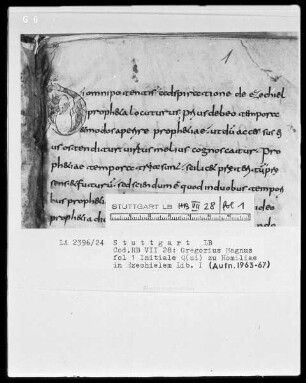 G 6
1
di omnipotentis aedspiratione de ezechiel
propheta locuturus prius debeo tempora
et modos aperire prophetiae ut dum accessus
eius ostenditur virtus melius cognoscatur pro
phetiae tempora tria sunt scilicet
sens et futurum sed sciendum est quod in duobus tempori
bus prophetia
prophetia
STUTTGART LB HB VII 28 / fol 1
LA 2396/24 Stuttgart LB
Cod.HB VII 28: Gregorius Magnus
fol 1 Initiale Q(ui) zu Homiliae
in Ezechielem Lib. I (Aufn. 1963-67)